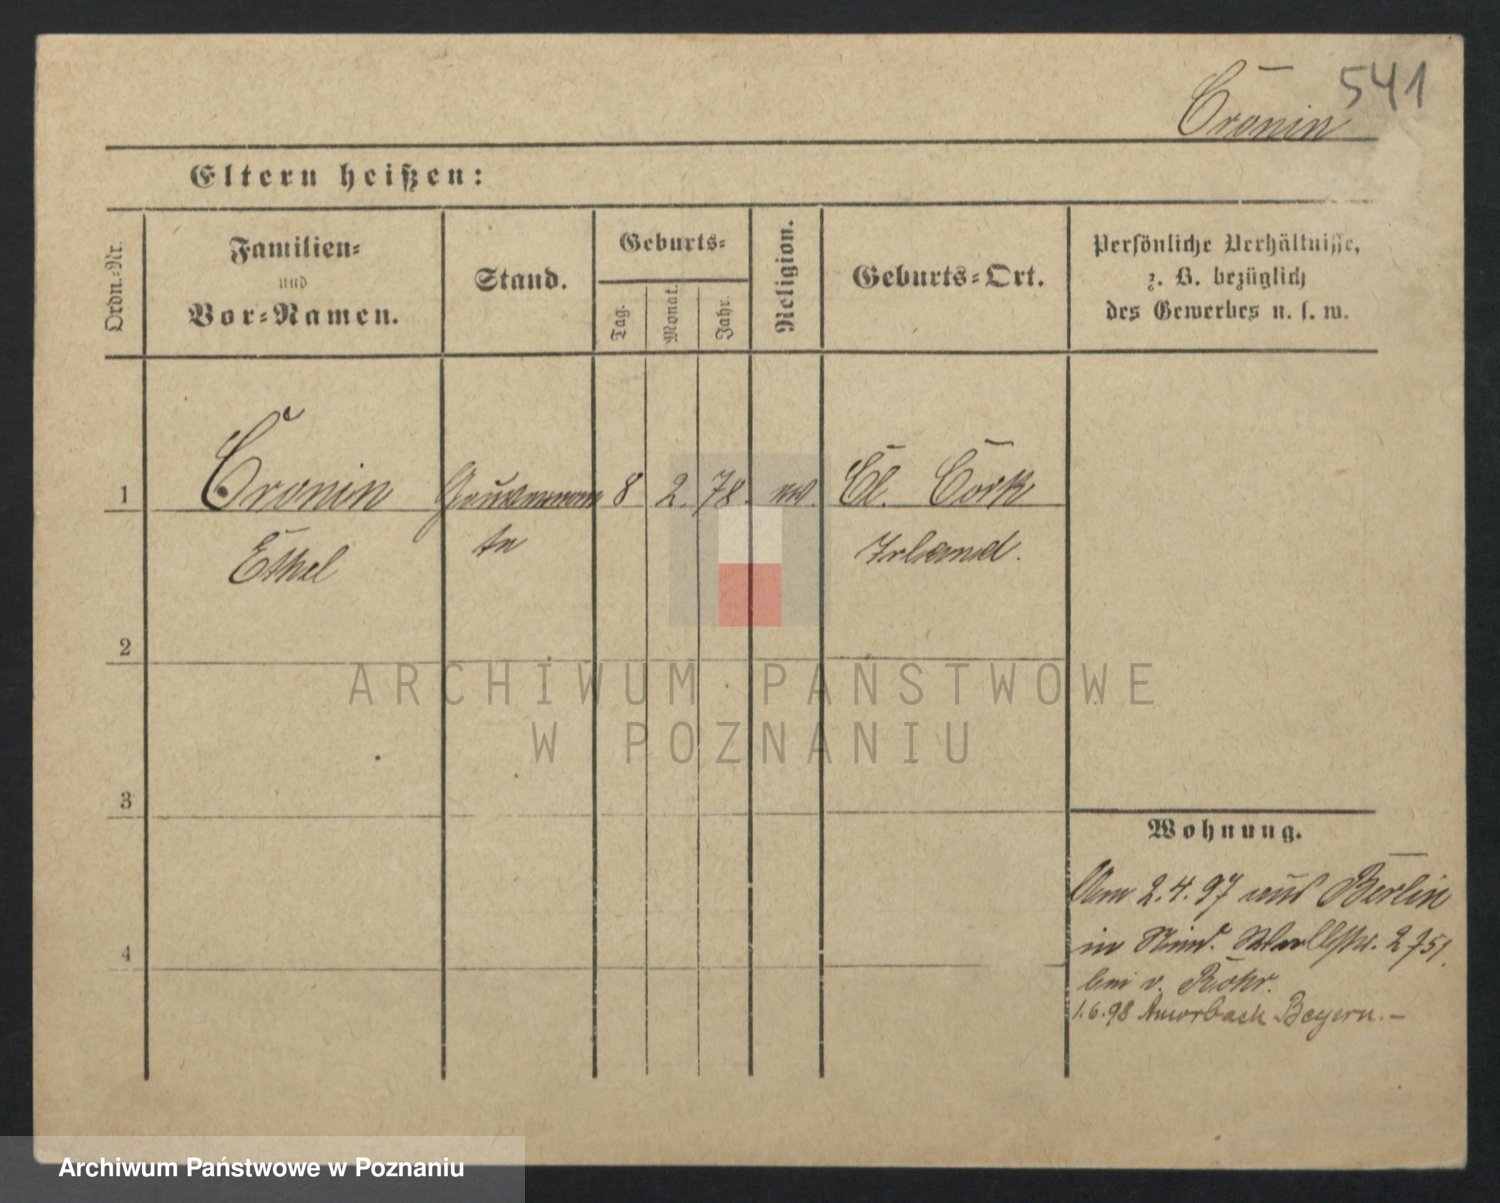 541
Cronin
Eltern heißen:
Ordn.-Nr.
Familien-
und
Vor-Namen.
Stand.
Geburts-
Tag.
Monat.
Jahr.
Religion.
Geburts-Ort.
Persönliche Verhältnisse,
z. B. bezüglich
des Gewerbes u. s. w.
1 Cronin 8 2. 78. Cl. Cork
Ethel Irland.
2
ARCHIWUM PAŃSTWOWE
W POZNANIU
3
Wohnung.
Am 2.4.97 aus Berlin
4
in 2 751.
bei v. Rohr.
1.6.98 Auerbach Beyern.-
Archiwum Państwowe w Poznaniu